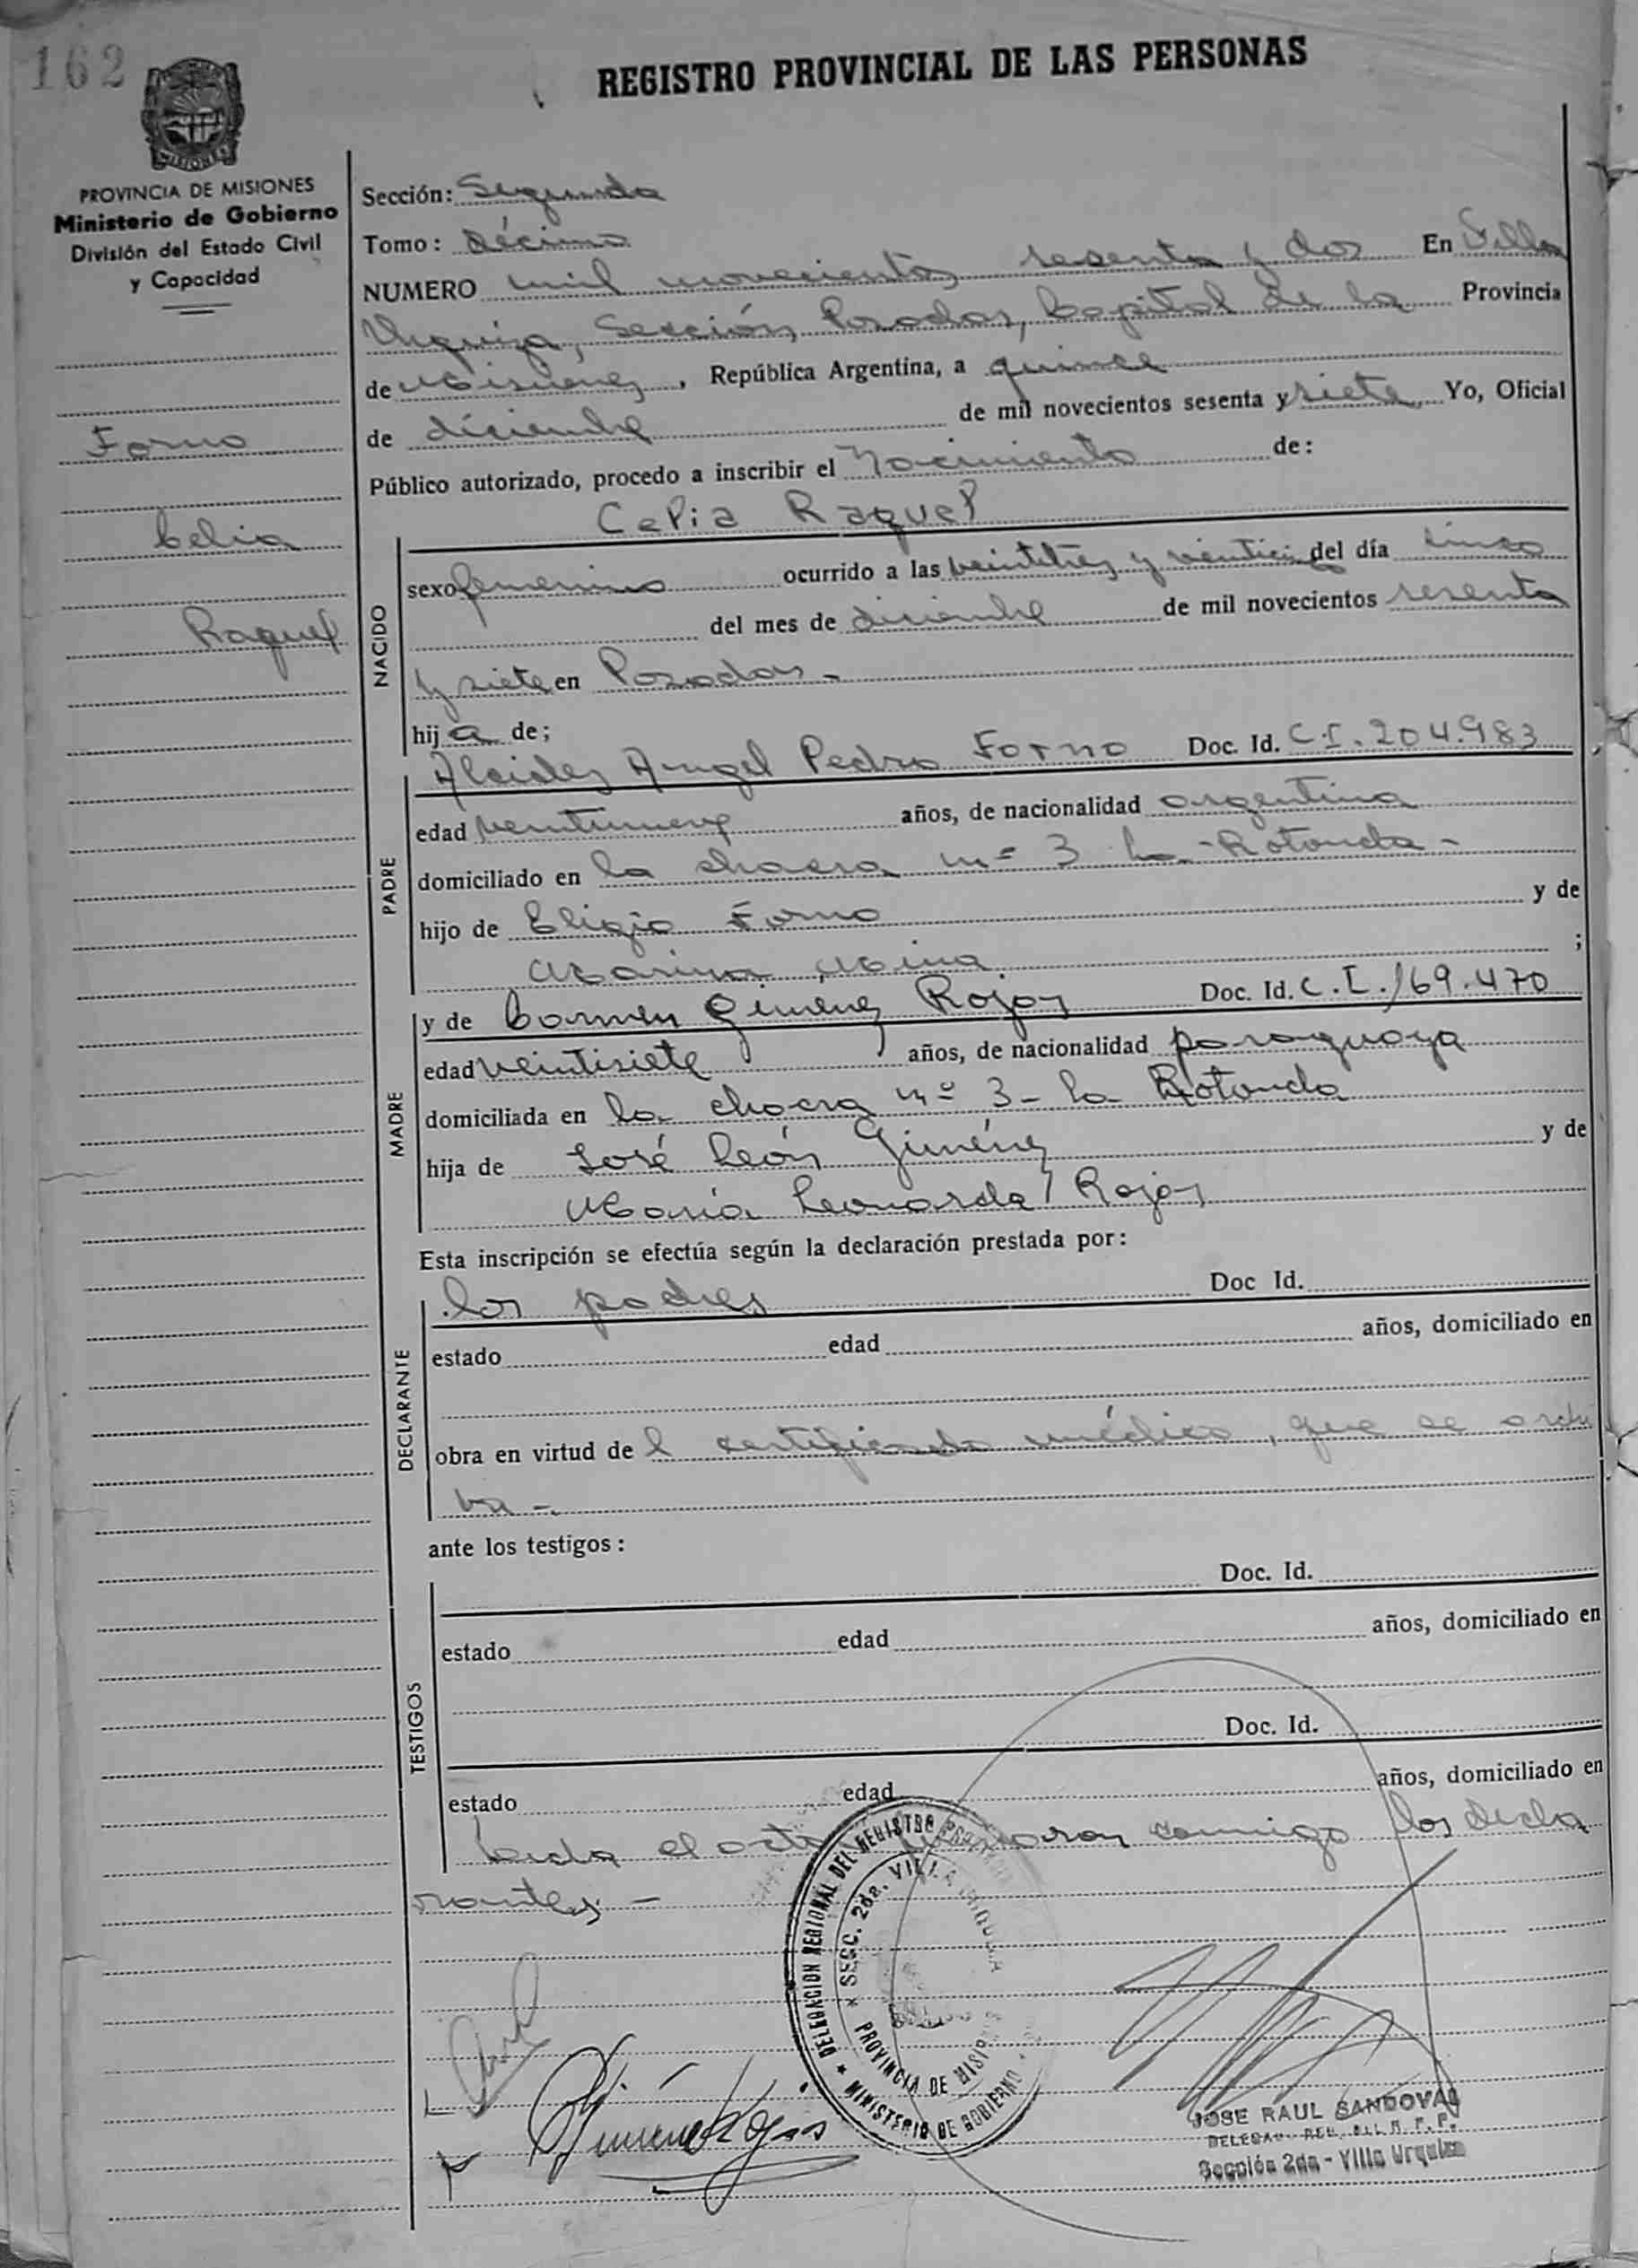 162
REGISTRO PROVINCIAL DE LAS PERSONAS
MISIONES
PROVINCIA DE MISIONES
Ministerio de Gobierno
División del Estado Civil
y Capacidad
Forno
Celia
Raquel
Sección: Segunda
Tomo: Décimo
NUMERO mil novecientos sesenta y dos En Villa
Urquiza, Sección, Posadas, Capital de la Provincia
de Misiones, República Argentina, a quince
de diciembre de mil novecientos sesenta y siete Yo, Oficial
Público autorizado, procedo a inscribir el Nacimiento de:
Celia Raquel
NACIDO
sexo femenino ocurrido a las veintitres y del día cinco
del mes de diciembre de mil novecientos sesenta
y siete en Posadas -
hija de;
Alcides Angel Pedro Forno Doc. Id. C.I. 204.983
PADRE
edad años, de nacionalidad argentina
domiciliado en la chacra nº 3 La Rotonda -
hijo de Eligio Forno y de
Marina ;
y de Carmen Giménez Rojas Doc. Id. C.I. 169.470
MADRE
edad veintisiete años, de nacionalidad paraguaya
domiciliada en la chacra nº 3 - La Rotonda
hija de José León Giménez y de
María Leonarda Rojas
Esta inscripción se efectúa según la declaración prestada por:
los padres Doc Id.
DECLARANTE
estado edad años, domiciliado en
obra en virtud del certificado médico, que se archi
va -
ante los testigos:
Doc. Id.
TESTIGOS
estado edad años, domiciliado en
Doc. Id.
estado edad años, domiciliado en
Leida el acta firmaron conmigo los decla
rantes. -
DELEGACION REGIONAL DEL REGISTRO
SECC. 2da. VILLA
PROVINCIA DE MISIONES
MINISTERIO DE GOBIERNO
Giménez Rojas
JOSE RAUL SANDOVAL
Sección 2da - Villa Urquiza